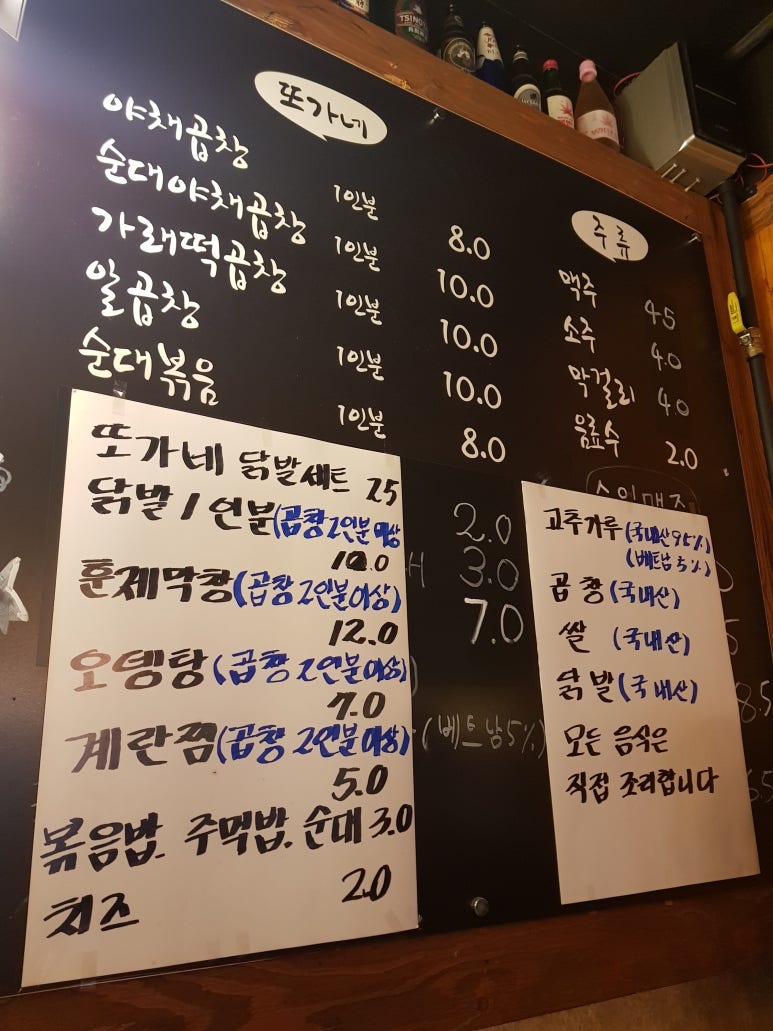 또가네
야채곱창 1인분 8.0
순대야채곱창 1인분 10.0
가래떡곱창 1인분 10.0
알곱창 1인분 10.0
순대볶음 1인분 8.0
주류
맥주 45
소주 4.0
막걸리 40
음료수 2.0
또가네 닭발세트 25
닭발 1인분(곱창2인분이상)
10.0
훈제막창(곱창2인분이상)
12.0
오뎅탕(곱창2인분이상)
7.0
계란찜(곱창2인분이상)
5.0
볶음밥. 주먹밥. 순대 3.0
치즈 2.0
2.0
3.0
7.0
(베트남5%)
고추가루(국내산95%)
(베트남5%)
곱창(국내산)
쌀 (국내산)
닭발(국내산)
모든 음식은
직접 조리합니다
TSINGTAO